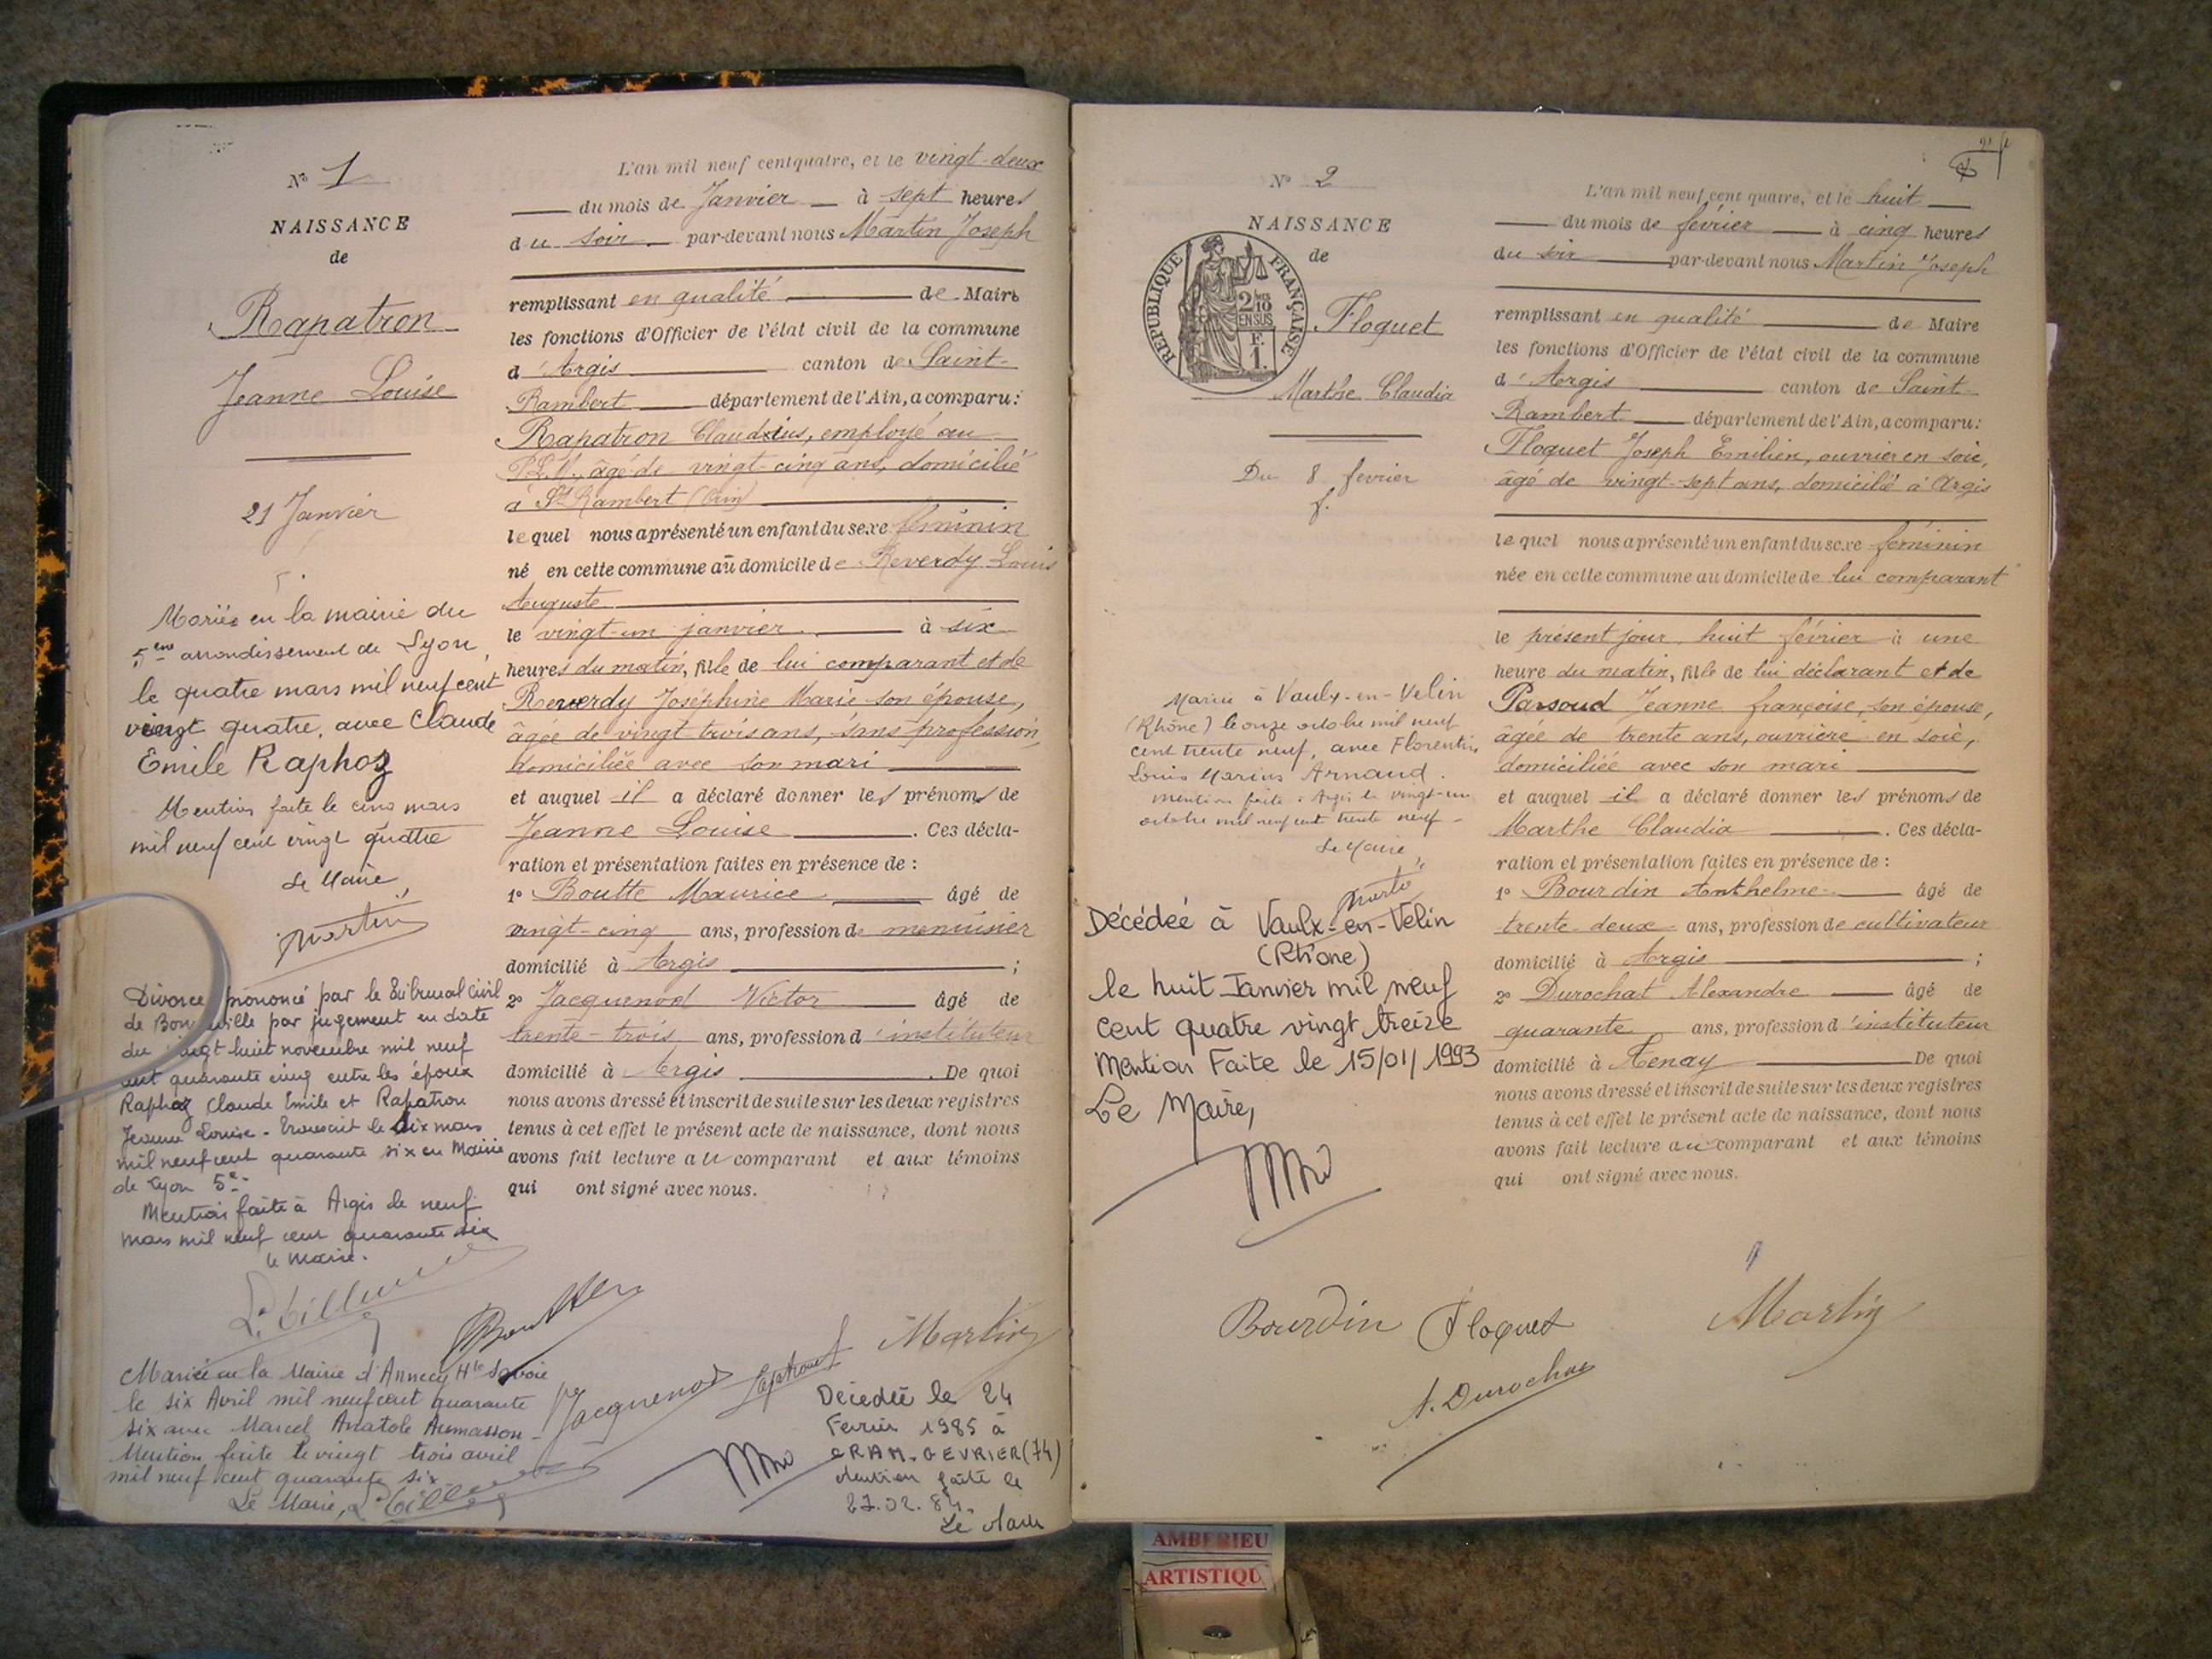 N° 1
NAISSANCE
de
Rapatron
Jeanne Louise
21 Janvier
Mariée en la mairie du
5ème arrondissement de Lyon,
le quatre mars mil neuf cent
vingt quatre, avec Claude
Emile Raphoz
Mention faite le cinq mars
mil neuf cent vingt quatre
Le Maire,
Martin
Divorce prononcé par le Tribunal Civil
de Bonneville par jugement en date
du vingt huit novembre mil neuf
cent quarante cinq entre les époux
Raphoz Claude Emile et Rapatron
Jeanne Louise - transcrit le dix mars
mil neuf cent quarante six en Mairie
de Lyon 5e.
Mention faite à Argis le neuf
mars mil neuf cent quarante six
le Maire.
Mariée en la Mairie d'Annecy Hte Savoie
le six Avril mil neuf cent quarante
six avec Marcel Anatole Aumasson -
Mention faite le vingt trois avril
mil neuf cent quarante six
Le Maire,
L'an mil neuf cent quatre, et le vingt-deux
du mois de Janvier à sept heures
du soir par-devant nous Martin Joseph
remplissant en qualité de Maire
les fonctions d'Officier de l'état civil de la commune
d'Argis canton de Saint-
Rambert département de l'Ain, a comparu:
Rapatron Claudius, employé au
P.L.M., âgé de vingt-cinq ans, domicilié
à St Rambert (Ain)
lequel nous a présenté un enfant du sexe féminin
né en cette commune au domicile de Reverdy Louis
Auguste
le vingt-un janvier à six
heures du matin, fille de lui comparant et de
Reverdy Joséphine Marie son épouse,
âgée de vingt trois ans, sans profession,
domiciliée avec son mari
et auquel il a déclaré donner les prénoms de
Jeanne Louise . Ces décla-
ration et présentation faites en présence de :
1° Boutte Maurice âgé de
vingt-cinq ans, profession de menuisier
domicilié à Argis ;
2° Jacquenod Victor âgé de
trente-trois ans, profession d'instituteur
domicilié à Argis . De quoi
nous avons dressé et inscrit de suite sur les deux registres
tenus à cet effet le présent acte de naissance, dont nous
avons fait lecture au comparant et aux témoins
qui ont signé avec nous.
Jacquenod
Martin
Décédée le 24
Fevrier 1985 à
CRAN-GEVRIER (74)
Mention faite le
Le Maire
N° 2
NAISSANCE
de
REPUBLIQUE FRANÇAISE
2/10
EN SUS
F.
1.
Floquet
Marthe Claudia
Du 8 fevrier
f.
Mariée à Vaulx-en-Velin
(Rhône) le onze octobre mil neuf
cent trente neuf, avec Florentin
Louis Marius Arnaud.
Mention faite à Argis le vingt-un
octobre mil neuf cent trente neuf -
Le Maire,
Martin
Décédée à Vaulx-en-Velin
(Rhône)
le huit Janvier mil neuf
cent quatre vingt treize
Mention Faite le 15/01/1993
Le Maire,
L'an mil neuf cent quatre, et le huit
du mois de février à cinq heures
du soir par-devant nous Martin Joseph
remplissant en qualité de Maire
les fonctions d'Officier de l'état civil de la commune
d'Argis canton de Saint-
Rambert département de l'Ain, a comparu:
Floquet Joseph Emilien, ouvrier en soie,
âgé de vingt-sept ans, domicilié à Argis
lequel nous a présenté un enfant du sexe féminin
née en cette commune au domicile de lui comparant
le présent jour, huit février à une
heure du matin, fille de lui déclarant et de
Parsoud Jeanne françoise, son épouse,
âgée de trente ans, ouvrière en soie,
domiciliée avec son mari
et auquel il a déclaré donner les prénoms de
Marthe Claudia . Ces décla-
ration et présentation faites en présence de :
1° Bourdin Anthelme âgé de
trente-deux ans, profession de cultivateur
domicilié à Argis ;
2° Durochat Alexandre âgé de
quarante ans, profession d'instituteur
domicilié à Tenay De quoi
nous avons dressé et inscrit de suite sur les deux registres
tenus à cet effet le présent acte de naissance, dont nous
avons fait lecture au comparant et aux témoins
qui ont signé avec nous.
Bourdin Floquet Martin
A. Durochat
AMBERIEU
ARTISTIQU